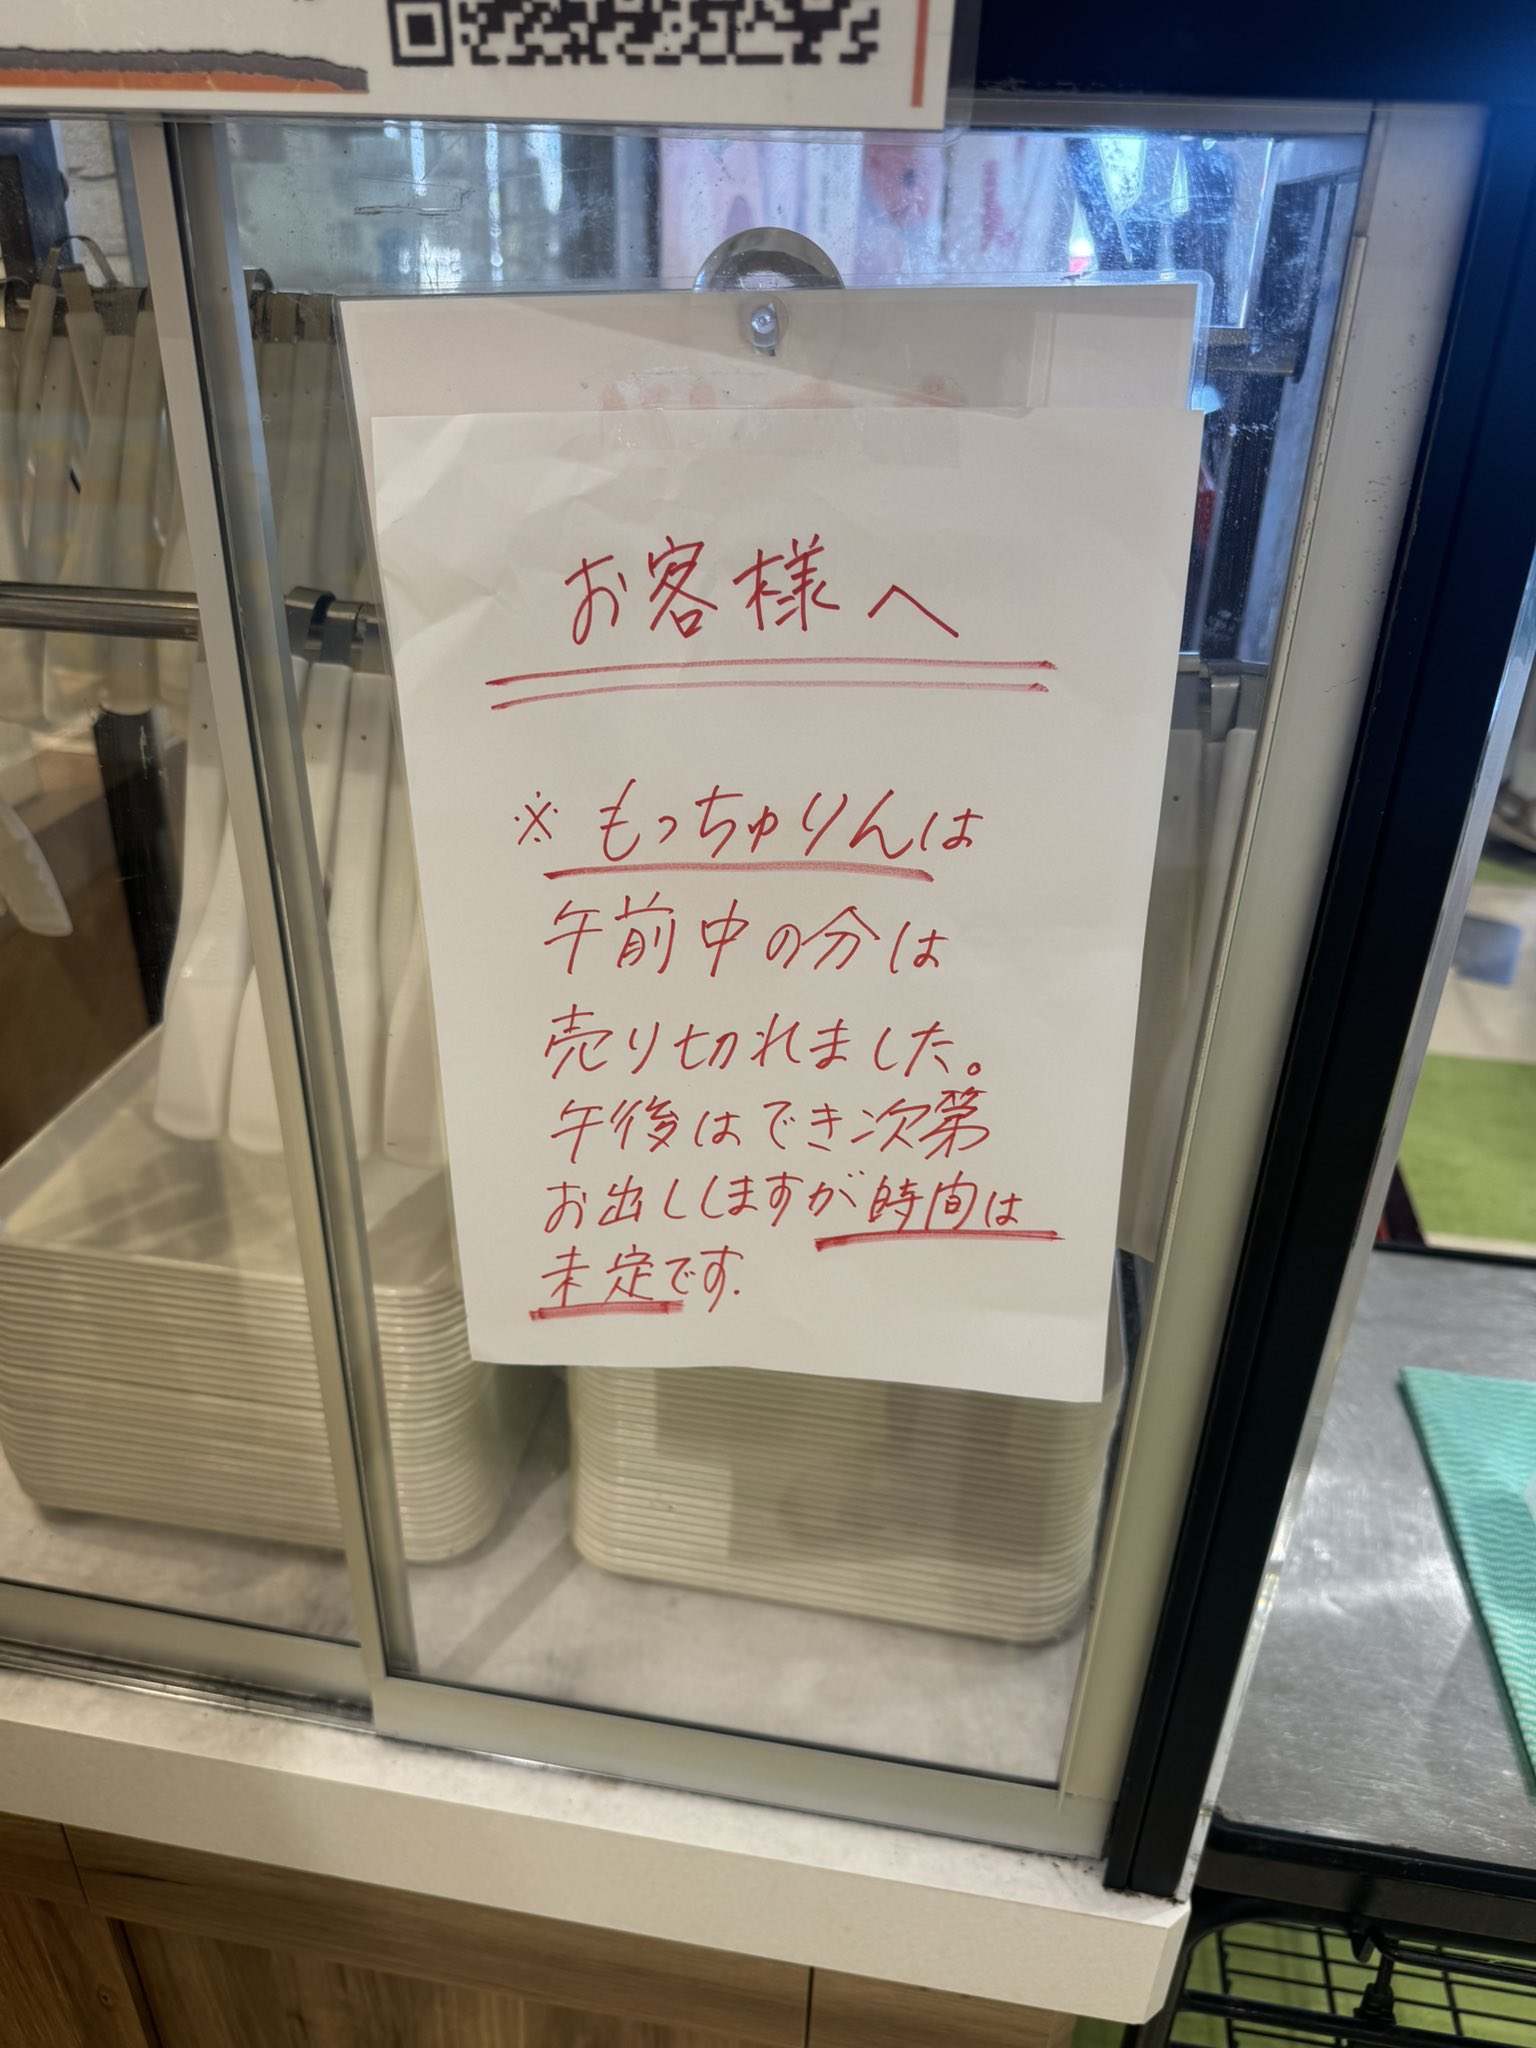 お客様へ
※もっちゅりんは
午前中の分は
売り切れました。
午後はでき次第
お出ししますが時間は
未定です.